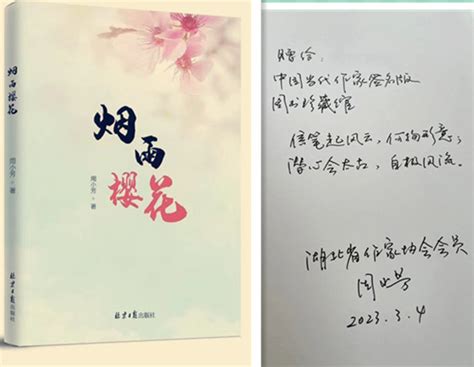 烟雨樱花
周小芳 著
烟雨
樱花
周小芳·著
北京日报出版社
赠给：
中国当代作家签名版
图书珍藏馆
信笔起风云，何拘形意；
潜心会太古，自极风流。
湖北省作家协会会员
周小芳
2023.3.4